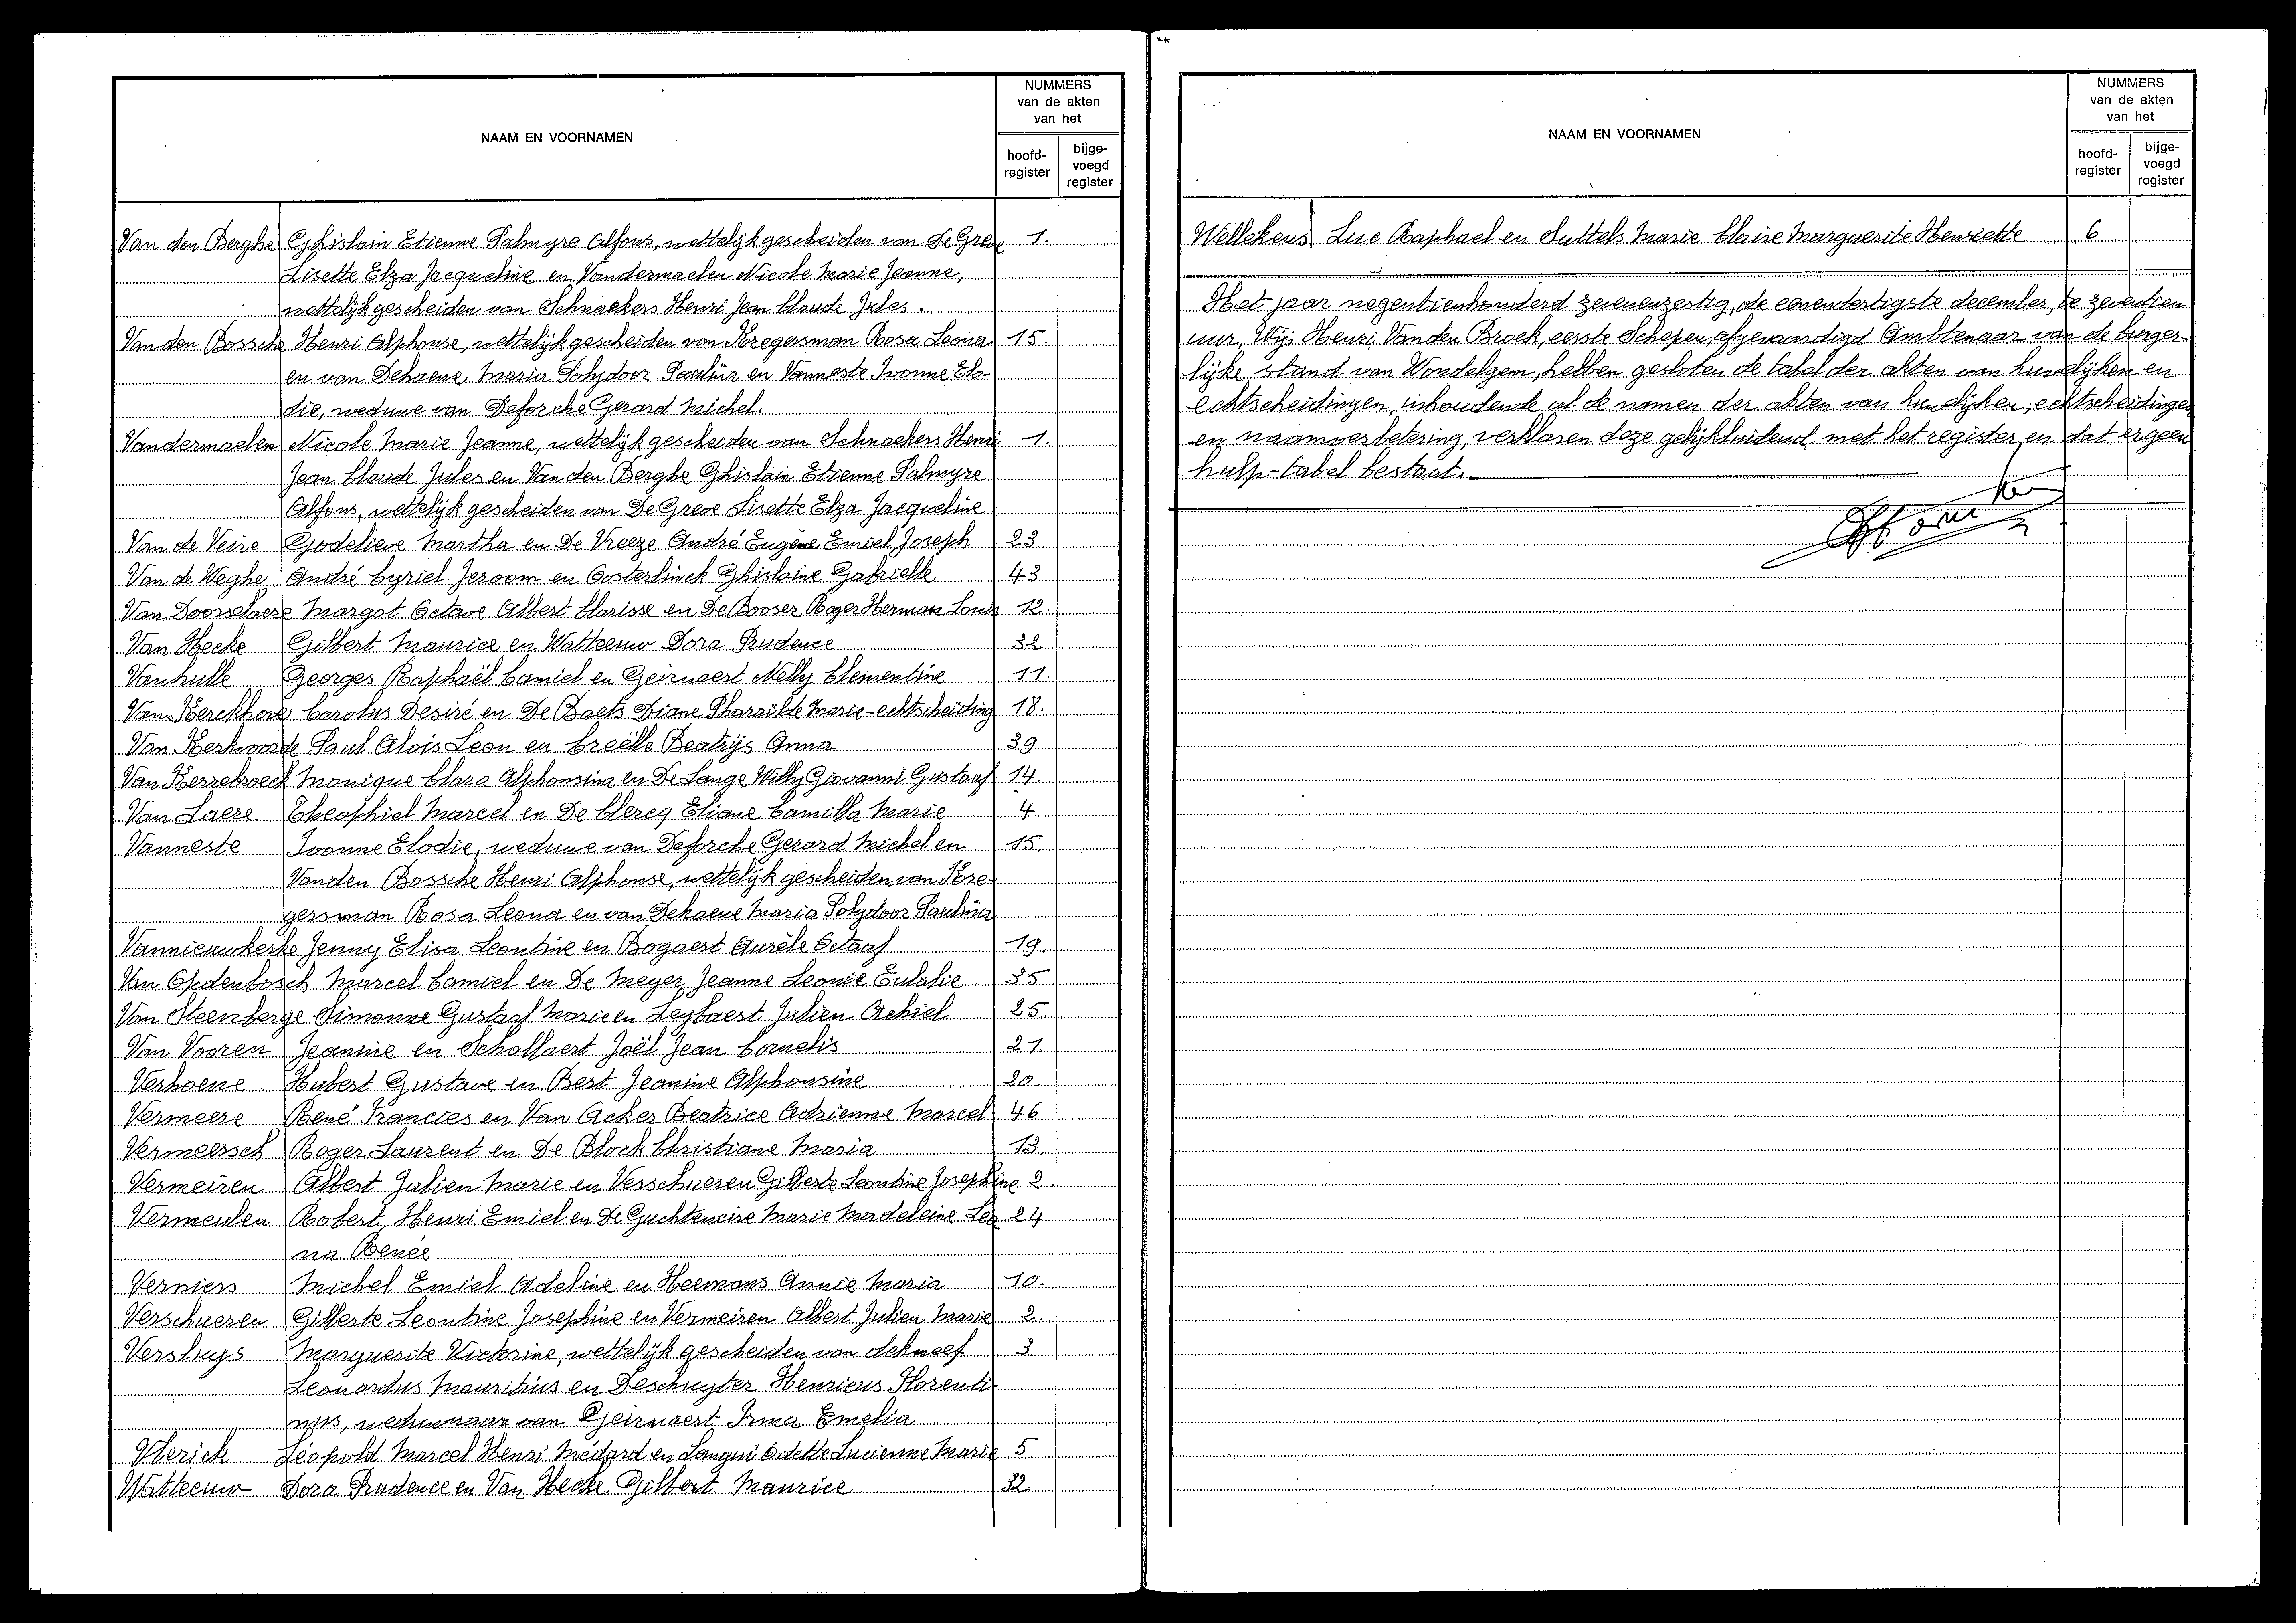 NAAM EN VOORNAMEN
NUMMERS
van de akten
van het
hoofd-
register
bijge-
voegd
register
Van den Berghe Ghislain Etienne Palmyre Alfons, wettelijk gescheiden van De Greve 1.
Lisette Elza Jacqueline en Vandermaelen Nicole Marie Jeanne,
wettelijk gescheiden van Schnackers Henri Jean Claude Jules.
Van den Bossche Henri Alphonse, wettelijk gescheiden van Kregersman Rosa Leona 15.
en van Dehaene Maria Polydoor Paulina en Vanneste Ivonne Elo-
die, weduwe van Deforche Gerard Michel.
Vandermaelen Nicole Marie Jeanne, wettelijk gescheiden van Schnackers Henri 1.
Jean Claude Jules en Van den Berghe Ghislain Etienne Palmyre
Alfons, wettelijk gescheiden van De Greve Lisette Elza Jacqueline
Van de Veire Godelieve Martha en De Vreeze André Eugène Emiel Joseph 23
Van de Weghe André Cyriel Jeroom en Oosterlinck Ghislaine Gabrielle 43
Van Doorselaere Margot Octave Albert Clarisse en De Booser Roger Herman Louis 12.
Van Hecke Gilbert Maurice en Watteeuw Dora Prudence 32
Vanhulle Georges Raphaël Camiel en Geirnaert Nelly Clementine 11.
Van Kerckhove Carolus Desiré en De Baets Diane Pharaïlde Marie - echtscheiding 18.
Van Kerkvoorde Paul Alois Leon en Creëlle Beatrijs Anna 39
Van Kerrebroeck Monique Clara Alphonsina en De Lange Willy Giovanni Gustaaf 14.
Van Laere Theophiel Marcel en De Clercq Eliane Camilla Marie 4
Vanneste Ivonne Elodie, weduwe van Deforche Gerard Michel en 15.
Vanden Bossche Henri Alphonse, wettelijk gescheiden van Kre-
gersman Rosa Leona en van Dehaene Maria Polydoor Paulina
Vannieuwkerke Jenny Elisa Leontine en Bogaert Aurèle Octaaf 19.
Van Opdenbosch Marcel Camiel en De Meyer Jeanne Leonie Eulalie 35
Van Steenberge Simonne Gustaaf Marie en Leybaert Julien Achiel 25.
Van Vooren Jeanine en Schollaert Joël Jean Cornelis 21.
Verhoene Hubert Gustave en Best Jeanine Alphonsine 20.
Vermeere René Francies en Van Acker Beatrice Adrienne Marcel 46
Vermeersch Roger Laurent en De Block Christiane Maria 13.
Vermeiren Albert Julien Marie en Verschueren Gilberte Leontine Josephine 2
Vermeulen Robert Henri Emiel en De Guchteneire Marie Madeleine Leo 24
na Renée
Verniers Michel Emiel Adeline en Heemans Annie Maria 10.
Verschueren Gilberte Leontine Josephine en Vermeiren Albert Julien Marie 2.
Versluys Marguerite Victorine, wettelijk gescheiden van Schneef 3
Leonardus Mauritius en Deschuyter Henricus Florenti-
nus, weduwnaar van Geirnaert Irma Emelia
Vlerick Léopold Marcel Henri Médard en Langui Odette Lucienne Marie 5
Watteeuw Dora Prudence en Van Hecke Gilbert Maurice 32
NAAM EN VOORNAMEN
NUMMERS
van de akten
van het
hoofd-
register
bijge-
voegd
register
Wellekens Luc Raphael en Suttels Marie Claire Marguerite Henriette 6
Het jaar negentienhonderd zevenenzestig, de eenendertigste december, te zeventien
uur, Wij, Henri Van den Broek, eerste Schepen, afgevaardigd Ambtenaar van de burger-
lijke stand van Wondelgem, hebben gesloten de tabel der akten van huwelijken en
echtscheidingen, inhoudende al de namen der akten van huwelijken, echtscheidingen
en naamverbetering, verklaren deze gelijkluidend met het register en dat er geen
hulp-tabel bestaat.